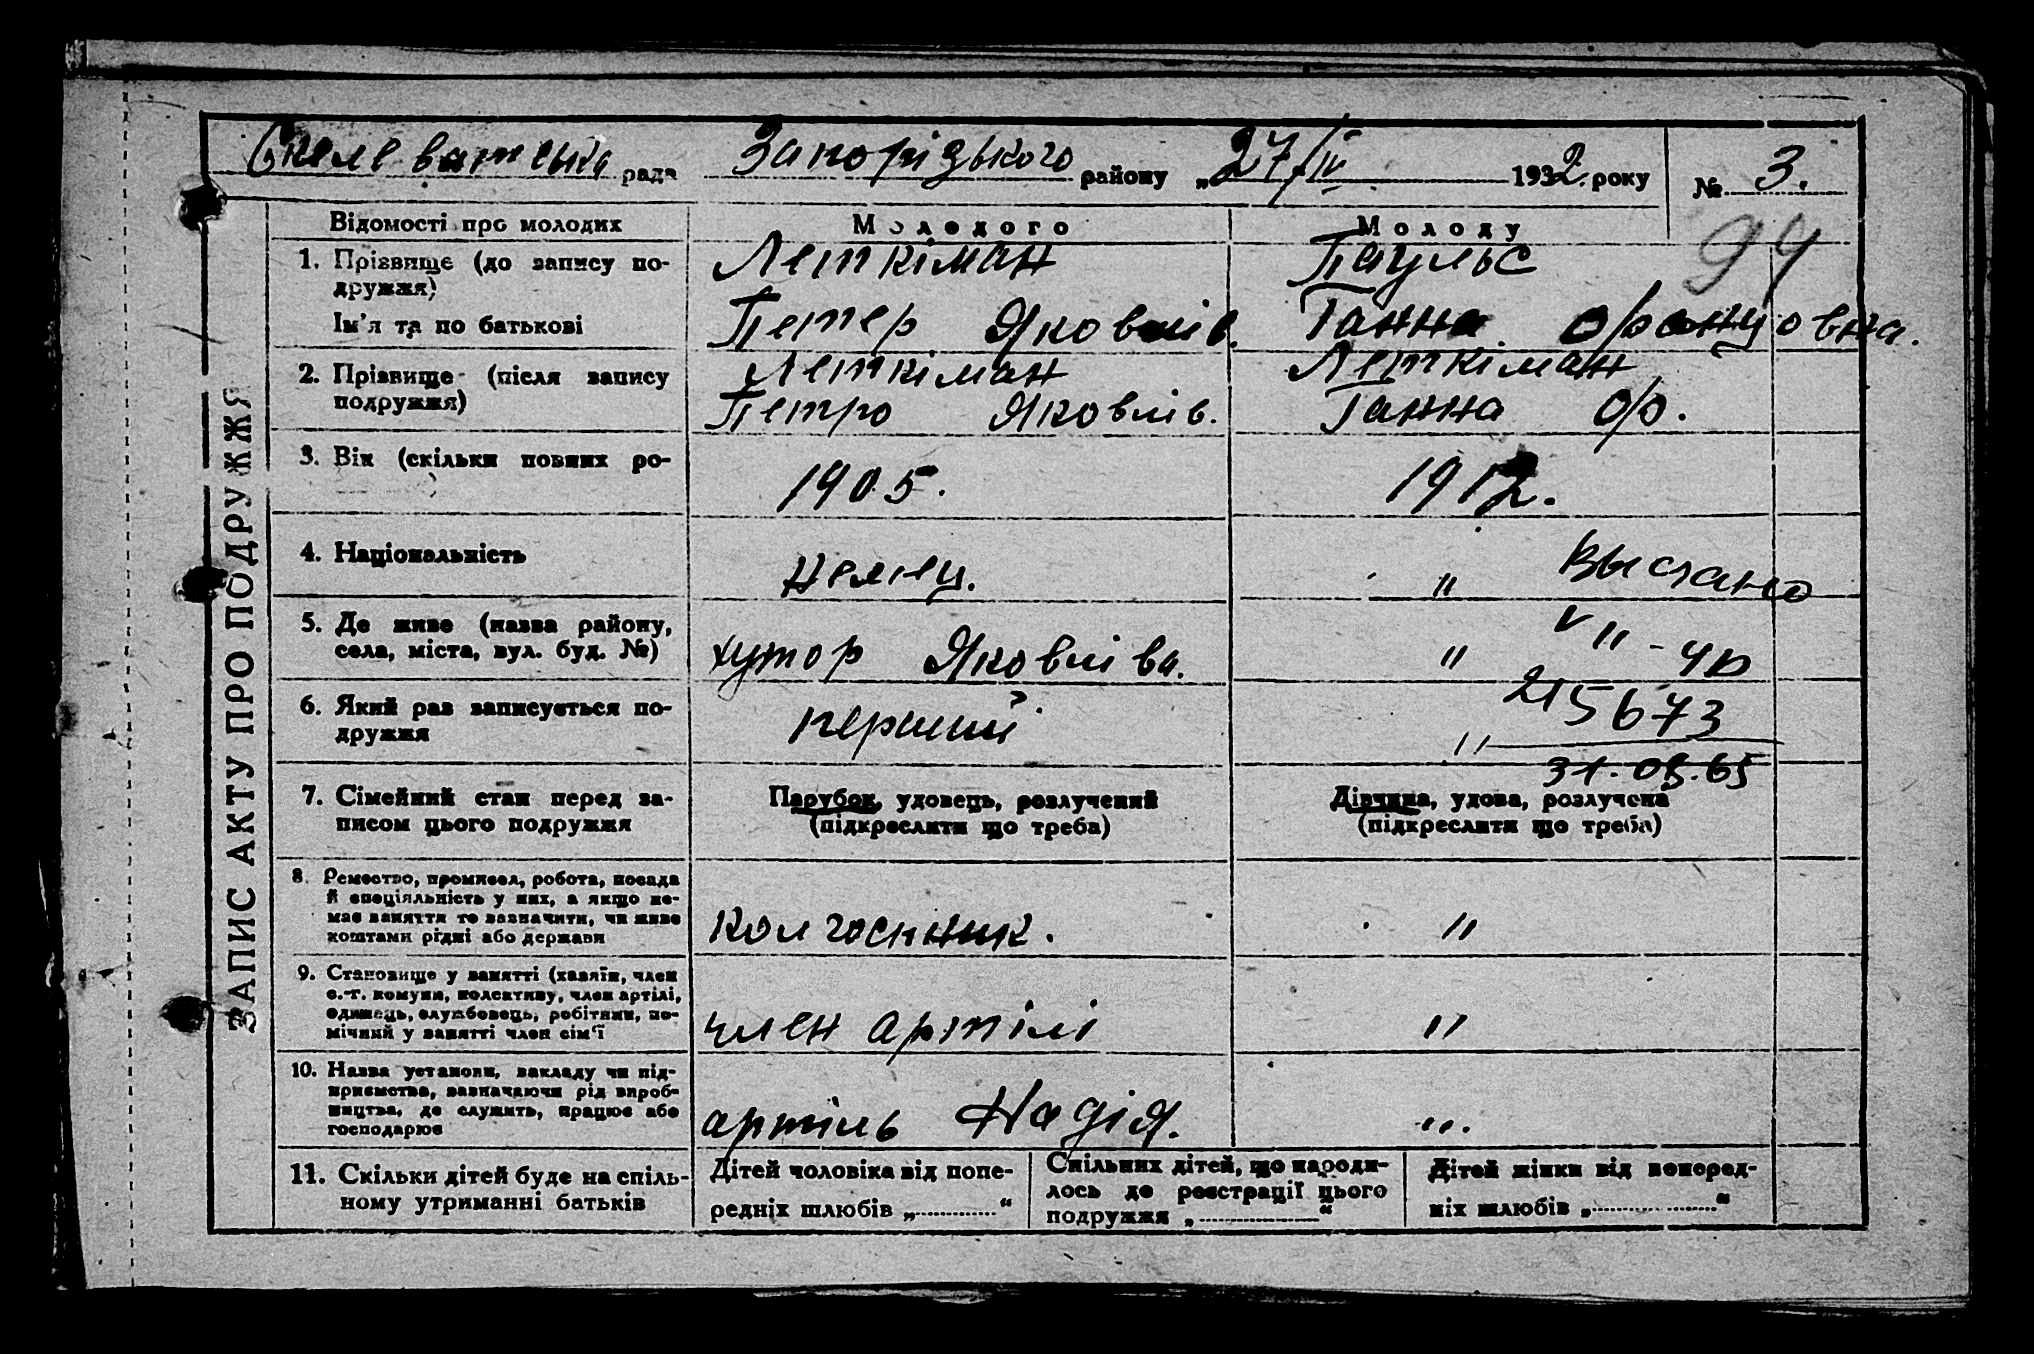 Скелеватська рада Запорізького району „27/IV 1932 року № 3.
94
ЗАПИС АКТУ ПРО ПОДРУЖЖЯ
Відомості про молодих Молодого Молоду
1. Прізвище (до запису по- Леткіман Паульс
дружжя)
Ім'я та по батькові Петер Яковлів. Ганна Францовна.
2. Прізвище (після запису Леткіман Леткіман
подружжя) Петро Яковлів. Ганна Фр.
3. Вік (скільки повних ро- 1905. 1912.
4. Національність немец. "
5. Де живе (назва району, хутор Яковліва. "
села, міста, вул. буд. №)
6. Який раз записується по- перший "
дружжя
V ІІ-ЧР
215673
31.05.65
7. Сімейний стан перед за- Парубок, удовець, розлучений Дівчина, удова, розлучена
писом цього подружжя (підкреслити що треба) (підкреслити що треба)
8. Ремество, промисел, робота, посада
й спеціяльність у них, а якщо не-
має заняття то зазначити, чи живе колгоспник. "
коштами рідні або держави
9. Становище у занятті (хазяїн, член
с.-г. комуни, колективу, член артілі,
одинець, службовець, робітник, по- член артілі "
мічний у занятті член сім'ї
10. Назва установи, закладу чи під-
приємства, зазначаючи рід вироб-
ництва, де служить, працює або артіль Надія. "
господарює
11. Скільки дітей буде на спіль- Дітей чоловіка від попе- Спільних дітей, що народи- Дітей жінки від поперед-
ному утриманні батьків редніх шлюбів „............“ лось до реєстрації цього ніх шлюбів „............“
подружжя „............“